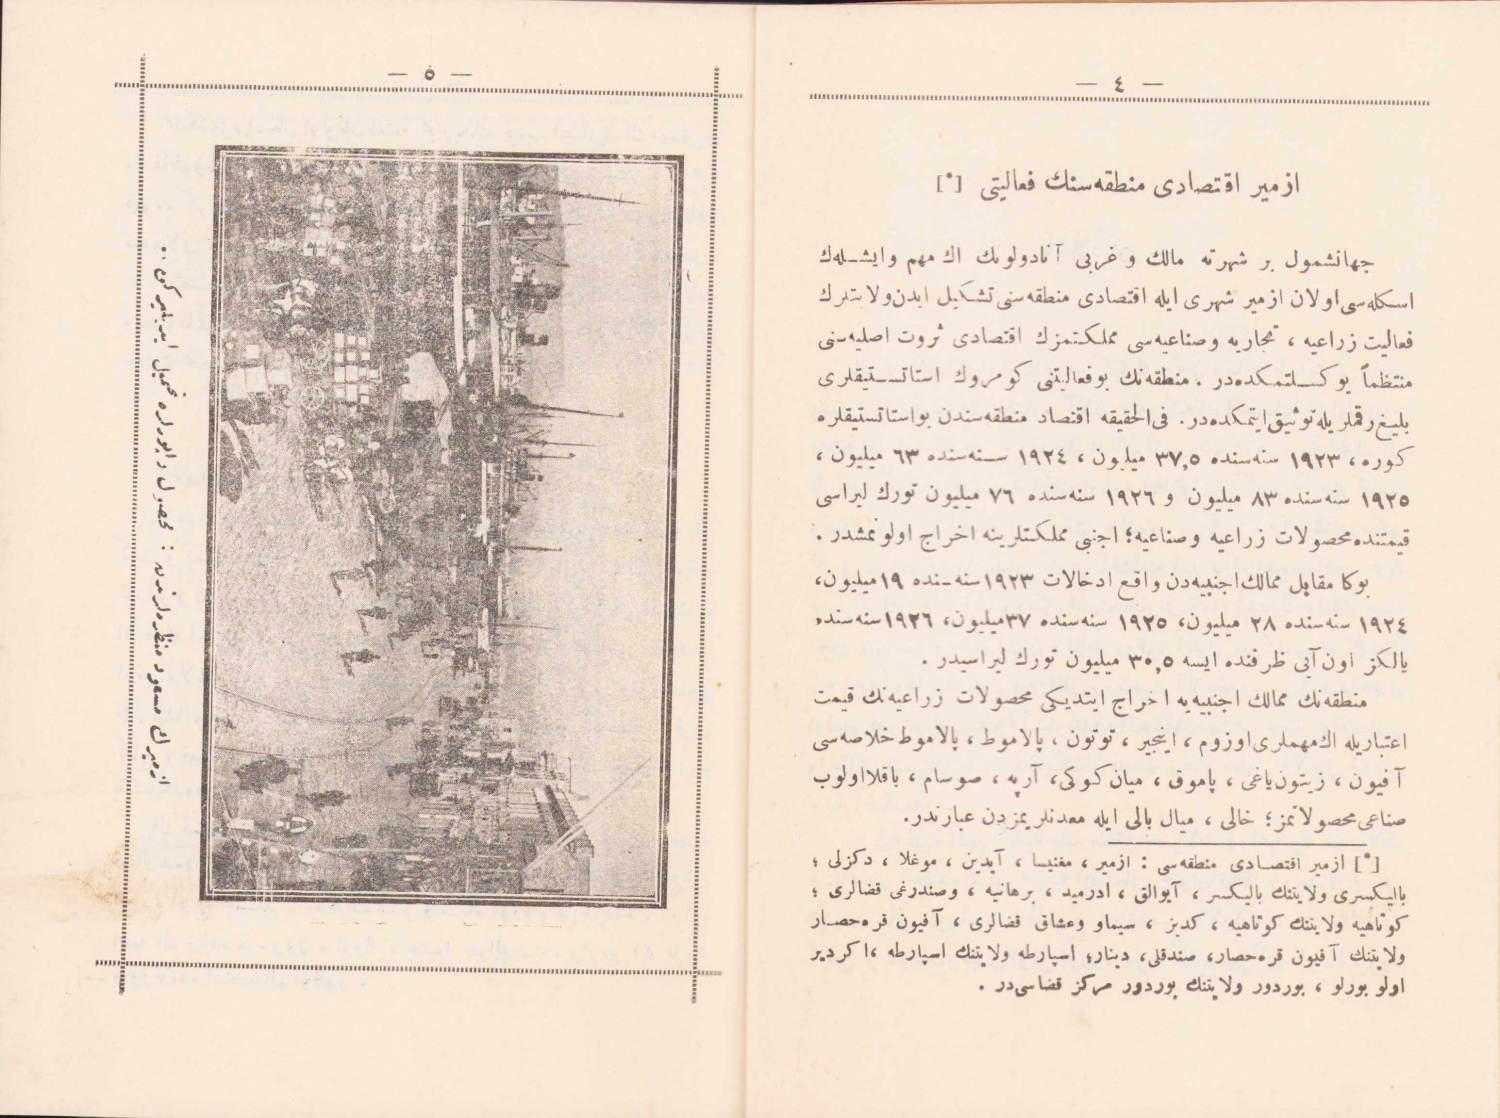 — ٤ —
ازمیر اقتصادی منطقه‌سنك فعالیتی [*]
جهانشمول بر شهرته مالك و غربی آنادولونك اك مهم وایشله‌ك
اسكله‌سی اولان ازمیر شهری ایله اقتصادی منطقه‌سنی تشكیل ایدن ولایتلرك
فعالیت زراعیه ، تجاریه وصناعیه‌سی مملكتمزك اقتصادی ثروت اصلیه‌سنی
منتظماً یوكسلتمكده‌در . منطقه‌نك بوفعالیتنی كومروك استاتستیقلری
بلیغ رقملریله توثیق ایتمكده‌در. فی‌الحقیقه اقتصاد منطقه‌سندن بواستاتستیقلره
كوره، ١٩٢٣ سنه‌سنده ٣٧,٥ میلیون ، ١٩٢٤ سنه‌سنده ٦٣ میلیون ،
١٩٢٥ سنه‌سنده ٨٣ میلیون و ١٩٢٦ سنه‌سنده ٧٦ میلیون تورك لیراسی
قیمتنده محصولات زراعیه وصناعیه؛ اجنبی مملكتلرینه اخراج اولونمشدر .
بوكا مقابل ممالك اجنبیه‌دن واقع ادخالات ١٩٢٣ سنه‌سنده ١٩ میلیون،
١٩٢٤ سنه‌سنده ٢٨ میلیون، ١٩٢٥ سنه‌سنده ٣٧ میلیون، ١٩٢٦ سنه‌سنده
یالكز اون آیی ظرفنده ایسه ٣٠,٥ میلیون تورك لیراسیدر .
منطقه‌نك ممالك اجنبیه‌یه اخراج ایتدیكی محصولات زراعیه‌نك قیمت
اعتباریله اك مهملری اوزوم ، اینجیر ، توتون ، پالاموط ، پالاموط خلاصه‌سی
آفیون ، زیتون یاغی ، پاموق ، میان كوكی، آرپه ، صوسام ، باقلا اولوب
صناعی محصولاتمز؛ خالی ، میال بالی ایله معدنلریمزدن عبارتدر.
[*] ازمیر اقتصادی منطقه‌سی : ازمیر ، مغنیسا ، آیدین ، موغلا ، دكزلی ؛
بالیكسری ولایتنك بالیكسر ، آیوالق ، ادرمید ، برهانیه ، وصندرغی قضالری ؛
كوتاهیه ولایتنك كوتاهیه ، كدیز ، سیماو وعشاق قضالری ، آفیون قره‌حصار
ولایتنك آفیون قره‌حصار، صندقلی، دینار؛ اسپارطه ولایتنك اسپارطه ،اكردیر
اولوبورلو ، بوردور ولایتنك بوردور مركز قضاسی‌در .
— ٥ —
ازمیرك مسعود منظره‌لرندن : محصول واپورلره تحمیل ایدیلیركن ..